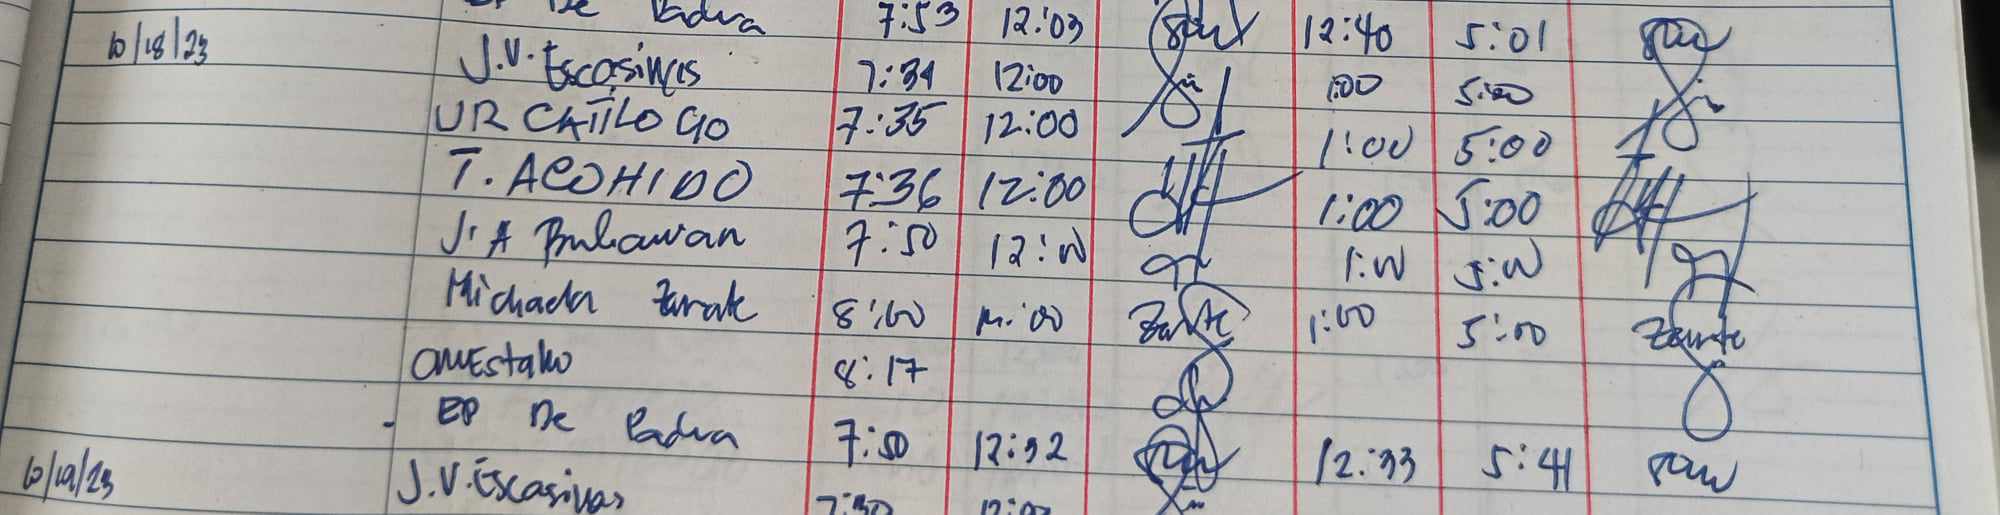 EP De Padua 7:53 12:03 12:40 5:01
10/18/23 J.V. Escasinas 7:34 12:00 1:00 5:00
UR CATILOGO 7:35 12:00 1:00 5:00
T. ACOHIDO 7:36 12:00 1:00 5:00
J.A Bulawan 7:50 12:00 1:00 5:00
Zarate 8:00 12:00 Zarate 1:00 5:00 Zarate
8:17
EP De Padua 7:50 12:32 12:33 5:41
10/19/23 J.V. Escasinas 7:30 12:00